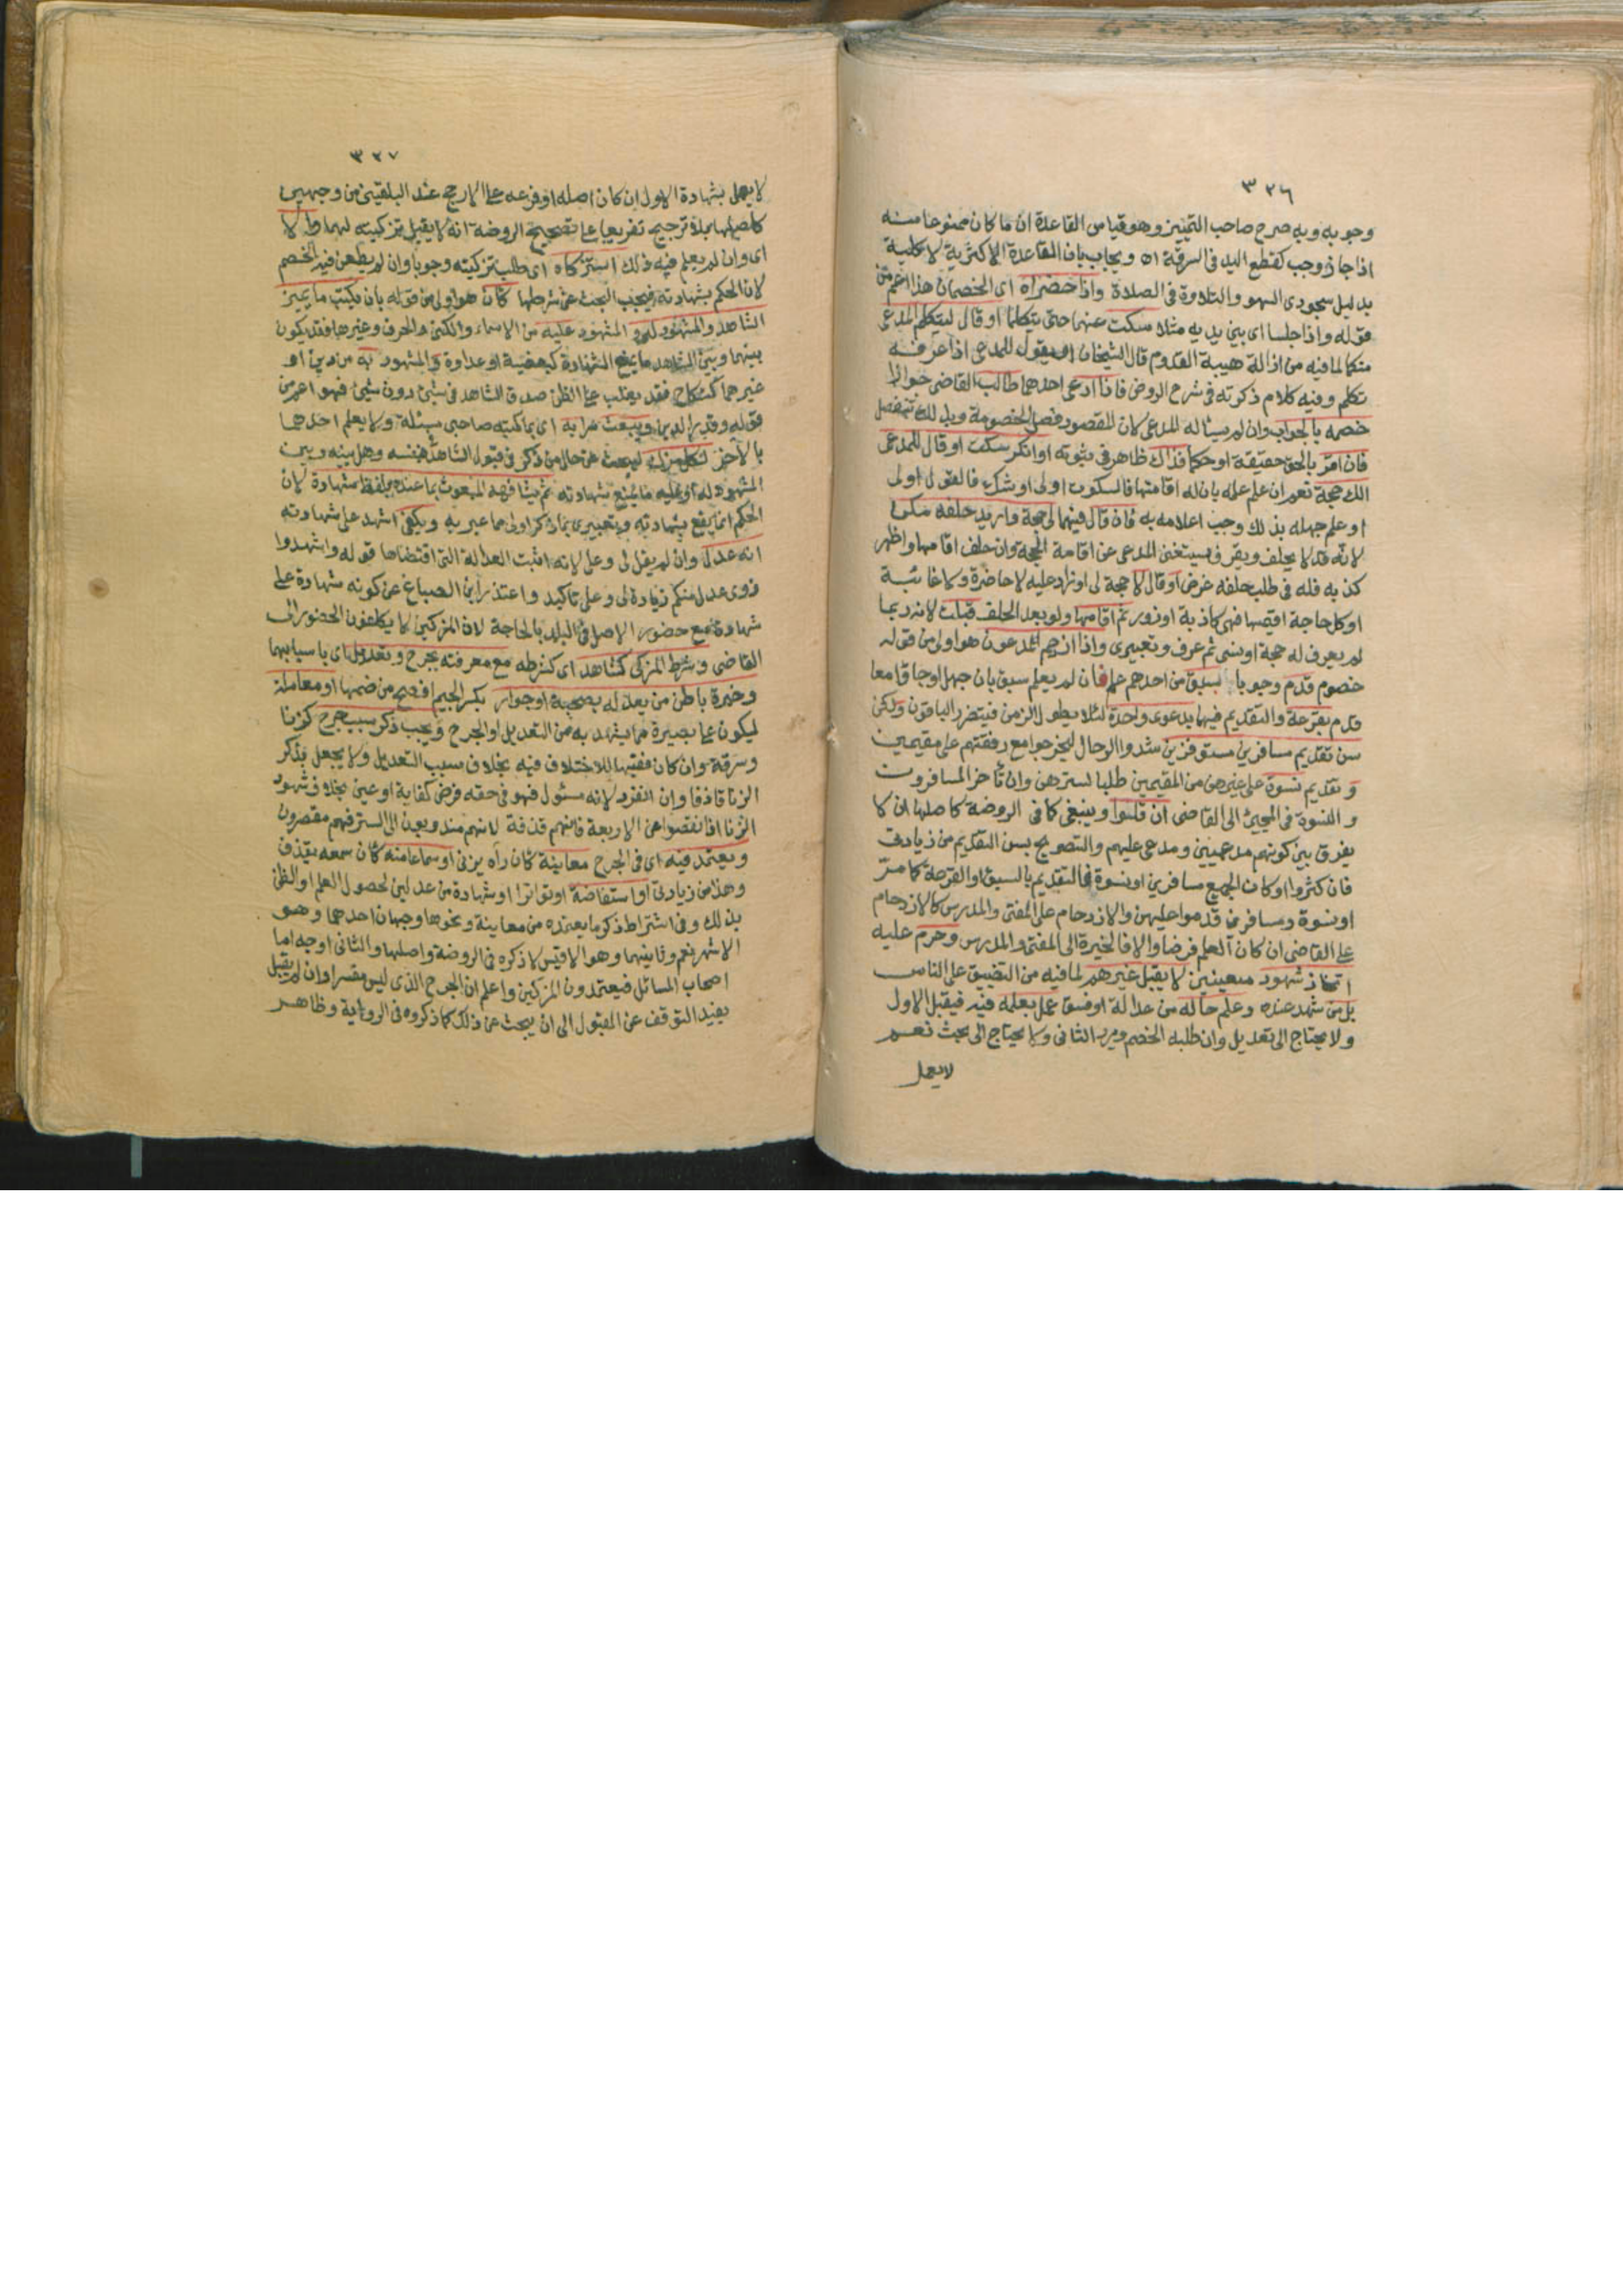 ٣٢٦
وجوبه وبه صرح صاحب التمييز وهو قياس القاعدة ان ما كان ممنوعا منه
اذا جاز وجب كقطع اليد في السرقة اه ويجاب بان القاعدة الاكثرية لا كلية
بدليل سجودى السهو والتلاوة في الصلاة واذا حضراه اى الخصمان هذا اعم من
قوله واذا جلسا اى بين يديه مثلا سكت عنهما حتى يتكلما او قال ليتكلم المدعى
منكما لما فيه من ازالة هيبة القدوم قال الشيخان او يقول للمدعى اذا عرفه
تكلم وفيه كلام ذكرته في شرح الروض فاذا ادعى احدهما طالب القاضى جوازا
خصمه بالجواب وان لم يسئاله المدعى لان المقصود فصل الخصومة وبذلك تنفصل
فان اقر بالحق حقيقة او حكما فذاك ظاهر في ثبوته او انكر سكت او قال للمدعى
الك حجة نعم ان علم علمه بان له اقامتها فالسكوت اولى او شك فالقول اولى
او علم جهله بذلك وجب اعلامه به فان قال فيهما لى حجة واريد حلفه مكن
لانه قد لا يحلف ويقر فيستغنى المدعى عن اقامة الحجة وان حلف اقامها واظهر
كذبه فله في طلب حلفه غرض او قال لا حجة لى او زاد عليه لا حاضرة ولا غائبة
او كل حاجة اقيمها فهى كاذبة او زور ثم اقامها ولو بعد الحلف قبلت لانه ربما
لم يعرف له حجة او نسى ثم عرف وتعبيرى واذا ازدحم المدعون هو اولى من قوله
خصوم قدم وجوبا بسبق من احدهم علم فان لم يعلم سبق بان جهل او جاؤا معا
قدم بقرعة والتقديم فيهما بدعوى واحدة لئلا يطول الزمن فيتضرر الباقون ولكن
سن تقديم مسافرين مستوفزين شدوا الرحال ليخرجوا مع رفقتهم على مقيمين
و تقديم نسوة على غيرهن من المقيمين طلبا لسترهن وان تأخر المسافرون
والنسوة في المجيئ الى القاضى ان قلوا وينبغى كما في الروضة كاصلها ان لا
يفرق بين كونهم مدعيين ومدعى عليهم والتصريح بسن التقديم من زيادتى
فان كثروا او كان الجميع مسافرين او نسوة فالتقديم بالسبق او القرعة كما مر
او نسوة ومسافرين قدموا عليهن والازدحام على المفتى والمدرس كالازدحام
على القاضى ان كان العلم فرضا والا فالخيرة الى المفتى والمدرس وحرم عليه
اتخاذ شهود معينين لا يقبل غيرهم لما فيه من التضييق على الناس
بل من شهد عنده وعلم حاله من عدالة او فسق عمل بعلمه فيه فيقبل الاول
ولا يحتاج الى تعديل وان طلبه الخصم ويرد الثانى ولا يحتاج الى بحث نعم
لا يعمل
٣٢٧
لا يعمل بشهادة الاول ان كان اصله او فرعه على الارجح عند البلقينى من وجهين
كاصلها بلا ترجيح تفريعا على تصحيح الروضة انه لا يقبل تزكيته لهما والا
اى وان لم يعلم فيه ذلك استزكاه اى طلب تزكيته وجوبا وان لم يطعن فيه الخصم
لان الحكم بشهادته فيجب البحث عن شرطها كأن هو اولى من قوله بان يكتب ما يميز
الشاهد والمشهود له و المشهود عليه من الاسماء والكنى والحرف وغيرها فقد يكون
بينهما وبين الشاهد ما يمنع الشهادة كبعضية او عداوة و المشهود به من دين او
غيرهما كنكاح فقد يغلب على الظن صدق الشاهد في شيئ دون شيئ فهو اعم من
قوله وقدر الدين ويبعث سرا به اى بما كتبه صاحبى مسئلة ولا يعلم احدهما
بالآخر لكل مزك ليبحث عن حال من ذكر في قبول الشاهد في نفسه وهل بينه وبين
المشهود له او عليه ما يمنع شهادته ثم يشافهه المبعوث بما عنده بلفظ شهادة لان
الحكم انما يقع بشهادته وتعبيرى بما ذكر اولى مما عبر به ويكفى اشهد على شهادته
انه عدل وان لم يقل لى وعلى لانه اثبت العدالة التى اقتضاها قوله واشهدوا
ذوى عدل منكم فزيادة لى وعلى تاكيد واعتذر ابن الصباغ عن كونه شهادة على
شهادة مع حضور الاصل في البلد بالحاجة لان المزكين لا يكلفون الحضور الى
القاضى وشرط المزكى كشاهد اى كشرطه مع معرفته بجرح وتعديل اى باسبابهما
وخبرة باطن من يعدله بصحبة او جوار بكسر الجيم افصح من ضمها او معاملة
ليكون على بصيرة مما يشهد به من التعديل او الجرح ويجب ذكر سبب جرح كزنا
وسرقة وان كان فقيها للاختلاف فيه بخلاف سبب التعديل ولا يجعل بذكر
الزنا قاذفا وان انفرد لانه مسئول فهو في حقه فرض كفاية او عين بخلاف شهود
الزنا اذا نقصوا عن الاربعة فانهم قذفة لانهم مندوبون الى الستر فهم مقصرون
ويعتمد فيه اى في الجرح معاينة كأن رآه يزنى او سماعا منه كأن سمعه يقذف
وهذا من زيادتى او استفاضة او تواترا او شهادة من عدلين لحصول العلم او الظن
بذلك وفي اشتراط ذكر ما يعتمده من معاينة ونحوها وجهان احدهما وهو
الاشهر نعم وثانيهما وهو الاقيس لا ذكره في الروضة واصلها والثانى اوجه اما
اصحاب المسائل فيعتمدون المزكين واعلم ان الجرح الذى ليس مفسرا وان لم يقبل
يفيد التوقف عن القبول الى ان يبحث عن ذلك كما ذكروه في الرواية وظاهر